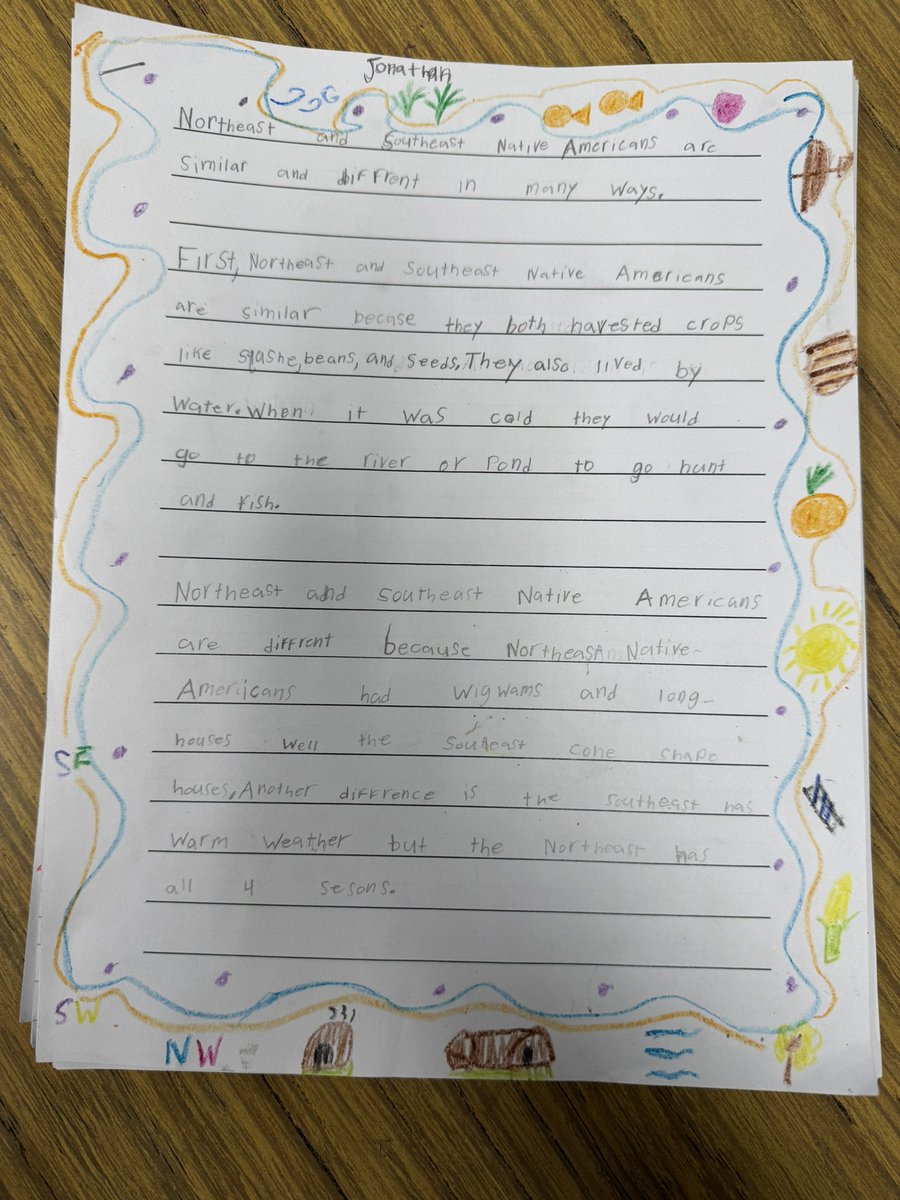 Jonathan
Northeast and Southeast Native Americans are
similar and diffrent in many ways.
First, Northeast and southeast Native Americans
are similar becase they both havested crops
like sqashe, beans, and seeds. They also lived by
water. When it was cold they would
go to the river or pond to go hunt
and fish.
Northeast and southeast Native Americans
are diffrent because Northeast Native-
Americans had wigwams and long-
houses well the Souteast cone shape
houses. Another diffrence is the southeast has
warm weather but the Northeast has
all 4 sesons.
SE
SW
NW